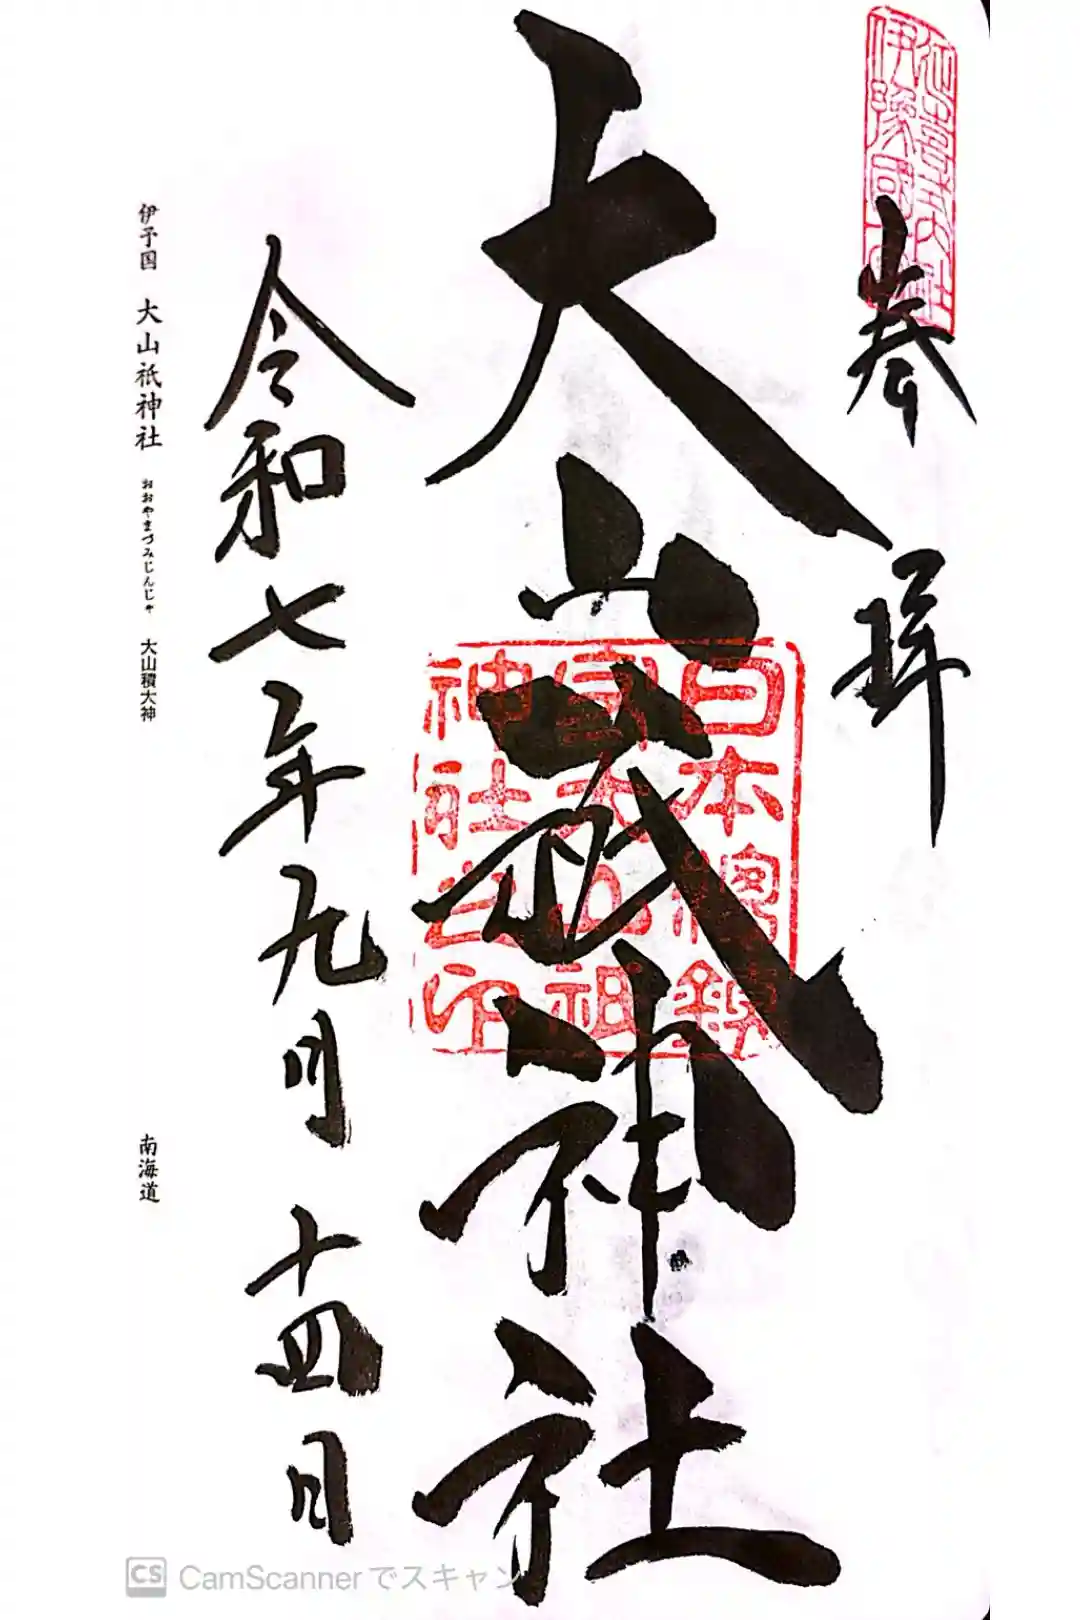 奉拝
延喜式内社
伊豫國一宮
大山祇神社
日本總鎮
守大山祇
神社之印
令和七年九月十四日
伊予国 大山祇神社 おおやまづみじんじゃ 大山積大神 南海道
CS CamScannerでスキャン